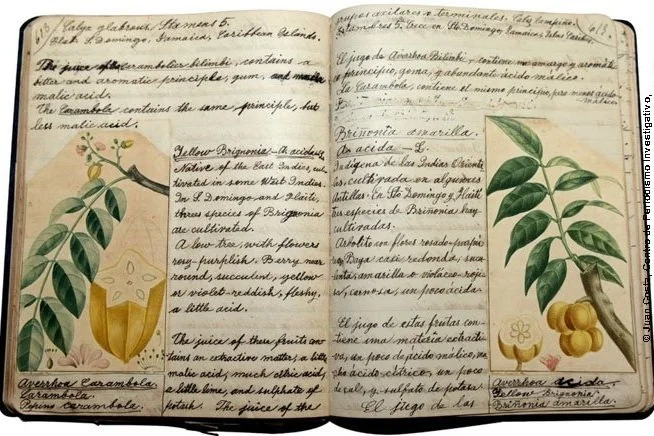 613 / Calyx glabrous, Stamens 5.
Hab. S. Domingo, Jamaica, Caribbean Islands.
The juice of the Carambolier bilimbi, contains a
bitter and aromatic principle, gum, and
malic acid.
The Carambola contains the same principle, but
less malic acid.
Yellow Brignonia - An acida - L.
Native of the East Indies, cul-
tivated in some West Indies.
In S. Domingo and Haiti,
three species of Brignonia
are cultivated.
A low tree, with flowers
rosy-purplish. Berry near
round, succulent, yellow
or violet-reddish, fleshy,
a little acid.
The juice of these fruits con-
tains an extractive matter, a little
malic acid, much citric acid,
a little lime, and sulphate of
potash. The juice of the
Averrhoa Carambola.
Carambola.
Pepino carambola.
grupos axilares o terminales. Caliz lampiño.
Estambres 5. Crece en Sto. Domingo, Jamaica, Islas Caribes.
613.
El jugo de Averrhoa Bilimbi, contiene un amargo y aromáti-
co principio, goma, y abundante ácido málico.
La Carambola, contiene el mismo principio, pero menos ácido
málico.
Briñonia amarilla.
An acida - L.
Indígena de las Indias Orienta-
les, cultivada en algunas
Antillas. En Sto Domingo y Haití
tres especies de Briñonia hay
cultivadas.
Arbolito con flores rosado-purpúr-
eas. Baya casi redonda, sucu-
lenta, amarilla o violáceo-roji-
za, carnosa, un poco ácida.
El jugo de estas frutas con-
tiene una materia extracti-
va, un poco de ácido málico, mu-
cho ácido cítrico, un poco
de cal, y sulfato de potasa.
El jugo de las
Averrhoa acida
Yellow Brignonia
Briñonia amarilla.
© Juan Costa, Centro de Periodismo Investigativo,